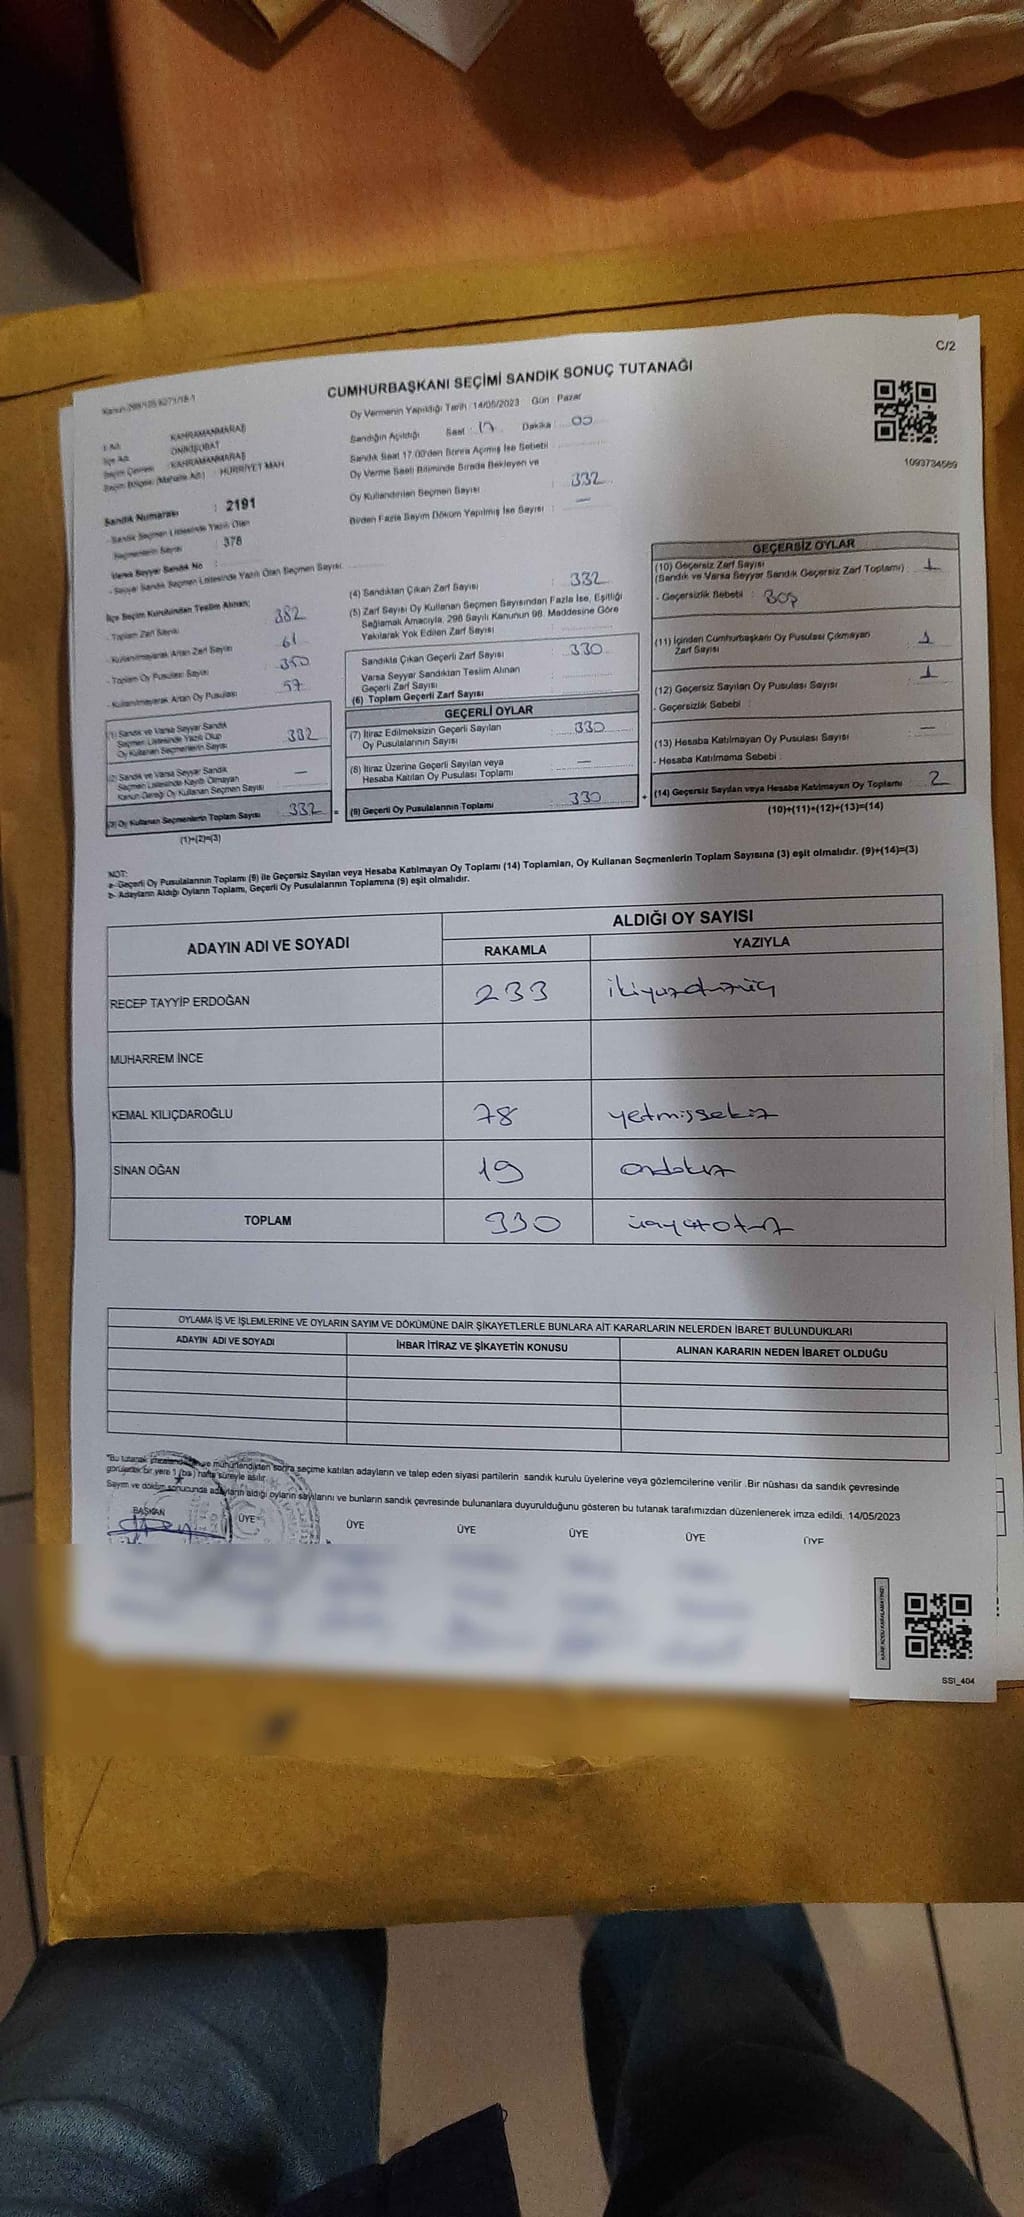 C/2
CUMHURBAŞKANI SEÇİMİ SANDIK SONUÇ TUTANAĞI
Oy Vermenin Yapıldığı Tarih : 14/05/2023 Gün : Pazar
Sandığın Açıldığı Saat : 17 Dakika : 00
Sandık Saat 17:00'den Sonra Açılmış İse Sebebi
Oy Verme Saati Bitiminde Sırada Bekleyen ve
Oy Kullandırılan Seçmen Sayısı : 332
Birden Fazla Sayım Döküm Yapılmış İse Sayısı : —
1093734589
İl Adı : KAHRAMANMARAŞ
İlçe Adı : ONİKİŞUBAT
Seçim Çevresi : KAHRAMANMARAŞ
Seçim Bölgesi (Mahalle Adı) : HÜRRİYET MAH
Sandık Numarası : 2191
- Sandık Seçmen Listesinde Yazılı Olan
Seçmenlerin Sayısı : 378
Varsa Seyyar Sandık No :
- Seyyar Sandık Seçmen Listesinde Yazılı Olan Seçmen Sayısı:
İlçe Seçim Kurulundan Teslim Alınan;
- Toplam Zarf Sayısı 382
- Kullanılmayarak Artan Zarf Sayısı 61
- Toplam Oy Pusulası Sayısı 350
- Kullanılmayarak Artan Oy Pusulası 57
(1) Sandık ve Varsa Seyyar Sandık
Seçmen Listesinde Yazılı Olup
Oy Kullanan Seçmenlerin Sayısı 332
(2) Sandık ve Varsa Seyyar Sandık
Seçmen Listesinde Kayıtlı Olmayan
Kanun Gereği Oy Kullanan Seçmen Sayısı —
(3) Oy Kullanan Seçmenlerin Toplam Sayısı 332 =
(1)+(2)=(3)
(4) Sandıktan Çıkan Zarf Sayısı : 332
(5) Zarf Sayısı Oy Kullanan Seçmen Sayısından Fazla İse, Eşitliği
Sağlamak Amacıyla, 298 Sayılı Kanunun 98. Maddesine Göre
Yakılarak Yok Edilen Zarf Sayısı :
Sandıkta Çıkan Geçerli Zarf Sayısı : 330
Varsa Seyyar Sandıktan Teslim Alınan
Geçerli Zarf Sayısı :
(6) Toplam Geçerli Zarf Sayısı :
GEÇERLİ OYLAR
(7) İtiraz Edilmeksizin Geçerli Sayılan
Oy Pusulalarının Sayısı : 330
(8) İtiraz Üzerine Geçerli Sayılan veya
Hesaba Katılan Oy Pusulası Toplamı : —
(9) Geçerli Oy Pusulalarının Toplamı : 330 +
GEÇERSİZ OYLAR
(10) Geçersiz Zarf Sayısı
(Sandık ve Varsa Seyyar Sandık Geçersiz Zarf Toplamı) : 1
- Geçersizlik Sebebi : Boş
(11) İçinden Cumhurbaşkanı Oy Pusulası Çıkmayan
Zarf Sayısı : 1
(12) Geçersiz Sayılan Oy Pusulası Sayısı : 1
- Geçersizlik Sebebi :
(13) Hesaba Katılmayan Oy Pusulası Sayısı : —
- Hesaba Katılmama Sebebi :
(14) Geçersiz Sayılan veya Hesaba Katılmayan Oy Toplamı : 2
(10)+(11)+(12)+(13)=(14)
NOT:
a- Geçerli Oy Pusulalarının Toplamı (9) ile Geçersiz Sayılan veya Hesaba Katılmayan Oy Toplamı (14) Toplamları, Oy Kullanan Seçmenlerin Toplam Sayısına (3) eşit olmalıdır. (9)+(14)=(3)
b- Adayların Aldığı Oyların Toplamı, Geçerli Oy Pusulalarının Toplamına (9) eşit olmalıdır.
ADAYIN ADI VE SOYADI ALDIĞI OY SAYISI
RAKAMLA YAZIYLA
RECEP TAYYİP ERDOĞAN 233 ikiyüzotuzüç
MUHARREM İNCE
KEMAL KILIÇDAROĞLU 78 yetmişsekiz
SİNAN OĞAN 19 ondokuz
TOPLAM 330 üçyüzotuz
OYLAMA İŞ VE İŞLEMLERİNE VE OYLARIN SAYIM VE DÖKÜMÜNE DAİR ŞİKAYETLERLE BUNLARA AİT KARARLARIN NELERDEN İBARET BULUNDUKLARI
ADAYIN ADI VE SOYADI İHBAR İTİRAZ VE ŞİKAYETİN KONUSU ALINAN KARARIN NEDEN İBARET OLDUĞU
"Bu tutanak imzalandıktan ve mühürlendikten sonra seçime katılan adayların ve talep eden siyasi partilerin sandık kurulu üyelerine veya gözlemcilerine verilir .Bir nüshası da sandık çevresinde
görülecek bir yere 1 (bir) hafta süreyle asılır.
Sayım ve döküm sonucunda adayların aldığı oyların sayılarını ve bunların sandık çevresinde bulunanlara duyurulduğunu gösteren bu tutanak tarafımızdan düzenlenerek imza edildi. 14/05/2023
BAŞKAN ÜYE ÜYE ÜYE ÜYE ÜYE ÜYE
SSI_404